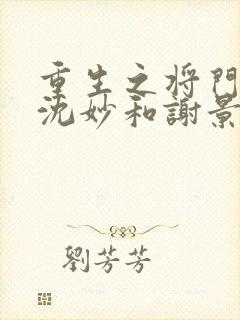 重生之将門
沈妙和謝景
劉芳芳